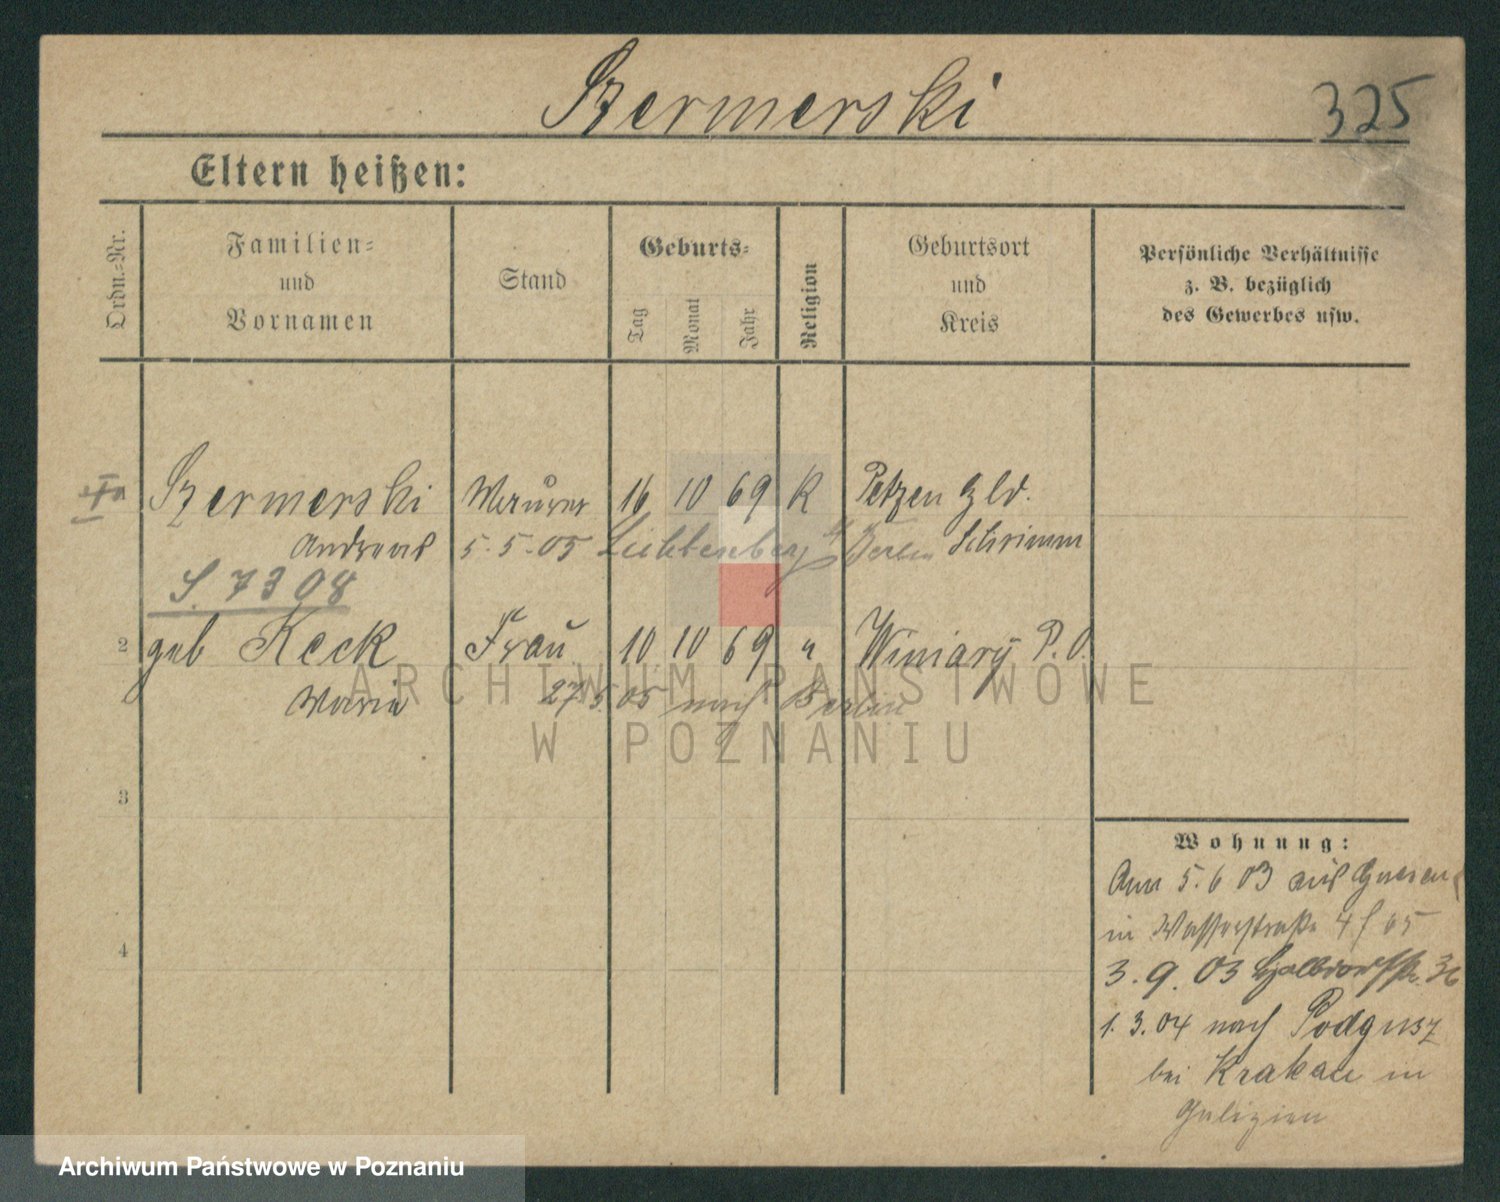 Szermerski 325
Eltern heißen:
Ordn.-Nr.
Familien-
und
Vornamen
Stand
Geburts-
Tag
Monat
Jahr
Religion
Geburtsort
und
Kreis
Persönliche Verhältnisse
z. B. bezüglich
des Gewerbes usw.
Szermerski Maurer 16 10 69 K
Andreas 5.-5.-05 Lichtenberg b/ Berlin Schrimm
S. 7308
2 geb Keck Frau 10 10 69 " Winiary P. O.
Maria 27 5. 05 nach Berlin
3
4
Wohnung:
Am 5. 6 03 aus Gnesen
in Wasserstraße
3. 9. 03
1. 3. 04 nach
bei Krakau in
Galizien
ARCHIWUM PAŃSTWOWE
W POZNANIU
Archiwum Państwowe w Poznaniu